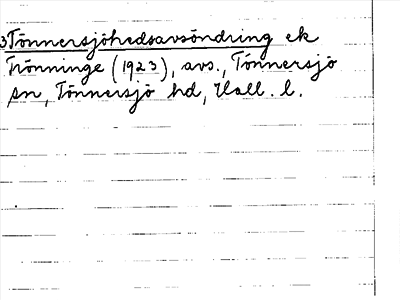 3Tönnersjöhedsavsöndring ek
Trönninge (1923), avs., Tönnersjö
sn, Tönnersjö hd, Hall. l.